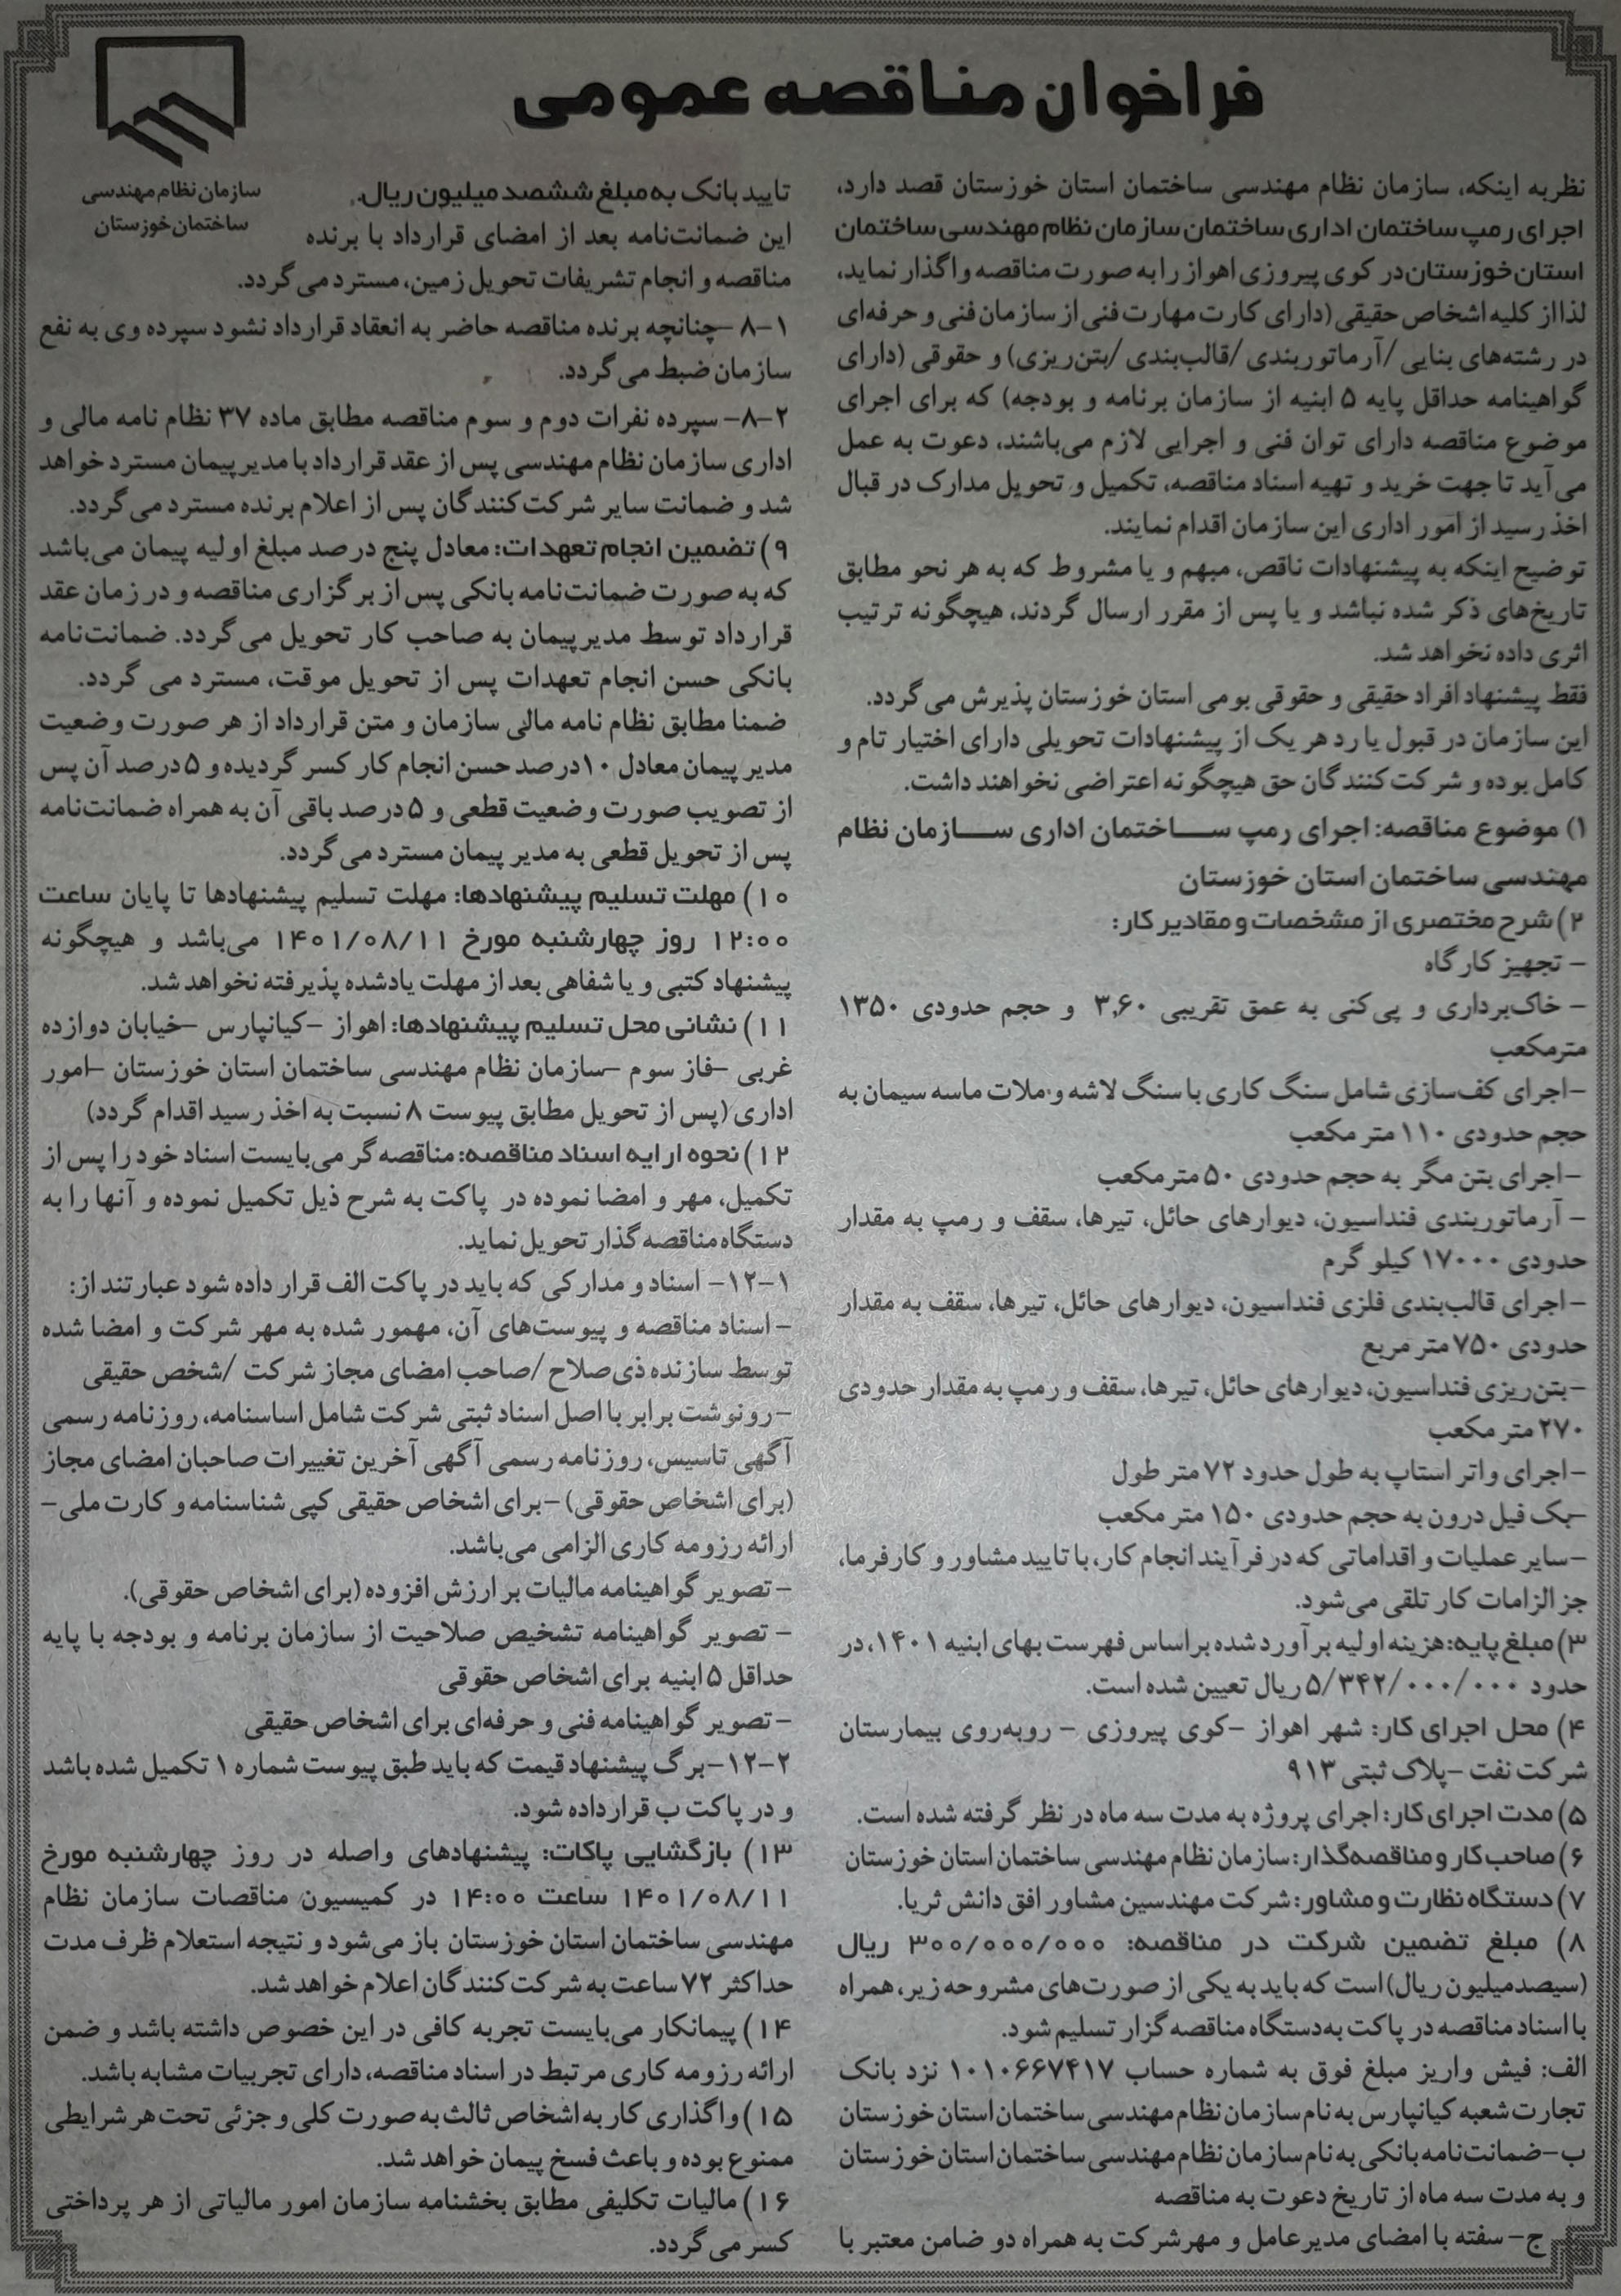 فراخوان مناقصه عمومی
سازمان نظام مهندسی
ساختمان خوزستان
نظر به اینکه، سازمان نظام مهندسی ساختمان استان خوزستان قصد دارد،
اجرای رمپ ساختمان اداری ساختمان سازمان نظام مهندسی ساختمان
استان خوزستان در کوی پیروزی اهواز را به صورت مناقصه واگذار نماید،
لذا از کلیه اشخاص حقیقی (دارای کارت مهارت فنی از سازمان فنی و حرفه‌ای
در رشته‌های بنایی /آرماتوربندی /قالب‌بندی /بتن‌ریزی) و حقوقی (دارای
گواهینامه حداقل پایه ۵ ابنیه از سازمان برنامه و بودجه) که برای اجرای
موضوع مناقصه دارای توان فنی و اجرایی لازم می‌باشند، دعوت به عمل
می‌آید تا جهت خرید و تهیه اسناد مناقصه، تکمیل و تحویل مدارک در قبال
اخذ رسید از امور اداری این سازمان اقدام نمایند.
توضیح اینکه به پیشنهادات ناقص، مبهم و یا مشروط که به هر نحو مطابق
تاریخ‌های ذکر شده نباشد و یا پس از مقرر ارسال گردند، هیچگونه ترتیب
اثری داده نخواهد شد.
فقط پیشنهاد افراد حقیقی و حقوقی بومی استان خوزستان پذیرش می گردد.
این سازمان در قبول یا رد هر یک از پیشنهادات تحویلی دارای اختیار تام و
کامل بوده و شرکت کنندگان حق هیچگونه اعتراضی نخواهند داشت.
۱) موضوع مناقصه: اجرای رمپ ساختمان اداری سازمان نظام
مهندسی ساختمان استان خوزستان
۲) شرح مختصری از مشخصات و مقادیر کار:
- تجهیز کارگاه
- خاک‌برداری و پی‌کنی به عمق تقریبی ۳,۶۰ و حجم حدودی ۱۳۵۰
مترمکعب
-اجرای کف‌سازی شامل سنگ کاری با سنگ لاشه و ملات ماسه سیمان به
حجم حدودی ۱۱۰ متر مکعب
-اجرای بتن مگر به حجم حدودی ۵۰ مترمکعب
- آرماتوربندی فنداسیون، دیوارهای حائل، تیرها، سقف و رمپ به مقدار
حدودی ۱۷۰۰۰ کیلو گرم
-اجرای قالب‌بندی فلزی فنداسیون، دیوارهای حائل، تیرها، سقف به مقدار
حدودی ۷۵۰ متر مربع
-بتن‌ریزی فنداسیون، دیوارهای حائل، تیرها، سقف و رمپ به مقدار حدودی
۲۷۰ متر مکعب
-اجرای واتر استاپ به طول حدود ۷۲ متر طول
-بک فیل درون به حجم حدودی ۱۵۰ متر مکعب
-سایر عملیات و اقداماتی که در فرآیند انجام کار، با تایید مشاور و کارفرما،
جز الزامات کار تلقی می‌شود.
۳) مبلغ پایه: هزینه اولیه برآورد شده براساس فهرست بهای ابنیه ۱۴۰۱، در
حدود ۵/۳۴۲/۰۰۰/۰۰۰ ریال تعیین شده است.
۴) محل اجرای کار: شهر اهواز -کوی پیروزی - روبه‌روی بیمارستان
شرکت نفت -پلاک ثبتی ۹۱۳
۵) مدت اجرای کار: اجرای پروژه به مدت سه ماه در نظر گرفته شده است.
۶) صاحب کار و مناقصه‌گذار: سازمان نظام مهندسی ساختمان استان خوزستان
۷) دستگاه نظارت و مشاور: شرکت مهندسین مشاور افق دانش ثریا.
۸) مبلغ تضمین شرکت در مناقصه: ۳۰۰/۰۰۰/۰۰۰ ریال
(سیصدمیلیون ریال) است که باید به یکی از صورت‌های مشروحه زیر، همراه
با اسناد مناقصه در پاکت به‌دستگاه مناقصه گزار تسلیم شود.
الف: فیش واریز مبلغ فوق به شماره حساب ۱۰۱۰۶۶۷۴۱۷ نزد بانک
تجارت شعبه کیانپارس به نام سازمان نظام مهندسی ساختمان استان خوزستان
ب-ضمانت‌نامه بانکی به نام سازمان نظام مهندسی ساختمان استان خوزستان
و به مدت سه ماه از تاریخ دعوت به مناقصه
ج- سفته با امضای مدیرعامل و مهرشرکت به همراه دو ضامن معتبر با
تایید بانک به مبلغ ششصد میلیون ریال.
این ضمانت‌نامه بعد از امضای قرارداد با برنده
مناقصه و انجام تشریفات تحویل زمین، مسترد می گردد.
۸-۱ -چنانچه برنده مناقصه حاضر به انعقاد قرارداد نشود سپرده وی به نفع
سازمان ضبط می گردد.
۸-۲- سپرده نفرات دوم و سوم مناقصه مطابق ماده ۳۷ نظام نامه مالی و
اداری سازمان نظام مهندسی پس از عقد قرارداد با مدیر پیمان مسترد خواهد
شد و ضمانت سایر شرکت کنندگان پس از اعلام برنده مسترد می گردد.
۹) تضمین انجام تعهدات: معادل پنج درصد مبلغ اولیه پیمان می‌باشد
که به صورت ضمانت‌نامه بانکی پس از برگزاری مناقصه و در زمان عقد
قرارداد توسط مدیرپیمان به صاحب کار تحویل می گردد. ضمانت‌نامه
بانکی حسن انجام تعهدات پس از تحویل موقت، مسترد می گردد.
ضمنا مطابق نظام نامه مالی سازمان و متن قرارداد از هر صورت وضعیت
مدیر پیمان معادل ۱۰درصد حسن انجام کار کسر گردیده و ۵درصد آن پس
از تصویب صورت وضعیت قطعی و ۵ درصد باقی آن به همراه ضمانت‌نامه
پس از تحویل قطعی به مدیر پیمان مسترد می گردد.
۱۰) مهلت تسلیم پیشنهادها: مهلت تسلیم پیشنهادها تا پایان ساعت
۱۲:۰۰ روز چهارشنبه مورخ ۱۴۰۱/۰۸/۱۱ می‌باشد و هیچگونه
پیشنهاد کتبی و یا شفاهی بعد از مهلت یادشده پذیرفته نخواهد شد.
۱۱) نشانی محل تسلیم پیشنهادها: اهواز -کیانپارس -خیابان دوازده
غربی -فاز سوم -سازمان نظام مهندسی ساختمان استان خوزستان -امور
اداری (پس از تحویل مطابق پیوست ۸ نسبت به اخذ رسید اقدام گردد)
۱۲) نحوه ارایه اسناد مناقصه: مناقصه گر می‌بایست اسناد خود را پس از
تکمیل، مهر و امضا نموده در پاکت به شرح ذیل تکمیل نموده و آنها را به
دستگاه مناقصه گذار تحویل نماید.
۱۲-۱- اسناد و مدارکی که باید در پاکت الف قرار داده شود عبارتند از:
-اسناد مناقصه و پیوست‌های آن، مهمور شده به مهر شرکت و امضا شده
توسط سازنده ذی‌صلاح /صاحب امضای مجاز شرکت /شخص حقیقی
-رونوشت برابر با اصل اسناد ثبتی شرکت شامل اساسنامه، روزنامه رسمی
آگهی تاسیس، روزنامه رسمی آگهی آخرین تغییرات صاحبان امضای مجاز
(برای اشخاص حقوقی) -برای اشخاص حقیقی کپی شناسنامه و کارت ملی-
ارائه رزومه کاری الزامی می‌باشد.
-تصویر گواهینامه مالیات بر ارزش افزوده (برای اشخاص حقوقی).
- تصویر گواهینامه تشخیص صلاحیت از سازمان برنامه و بودجه با پایه
حداقل ۵ ابنیه برای اشخاص حقوقی
-تصویر گواهینامه فنی و حرفه‌ای برای اشخاص حقیقی
۱۲-۲-برگ پیشنهاد قیمت که باید طبق پیوست شماره ۱ تکمیل شده باشد
و در پاکت ب قرارداده شود.
۱۳) بازگشایی پاکات: پیشنهادهای واصله در روز چهارشنبه مورخ
۱۴۰۱/۰۸/۱۱ ساعت ۱۴:۰۰ در کمیسیون مناقصات سازمان نظام
مهندسی ساختمان استان خوزستان باز می‌شود و نتیجه استعلام ظرف مدت
حداکثر ۷۲ ساعت به شرکت کنندگان اعلام خواهد شد.
۱۴) پیمانکار می‌بایست تجربه کافی در این خصوص داشته باشد و ضمن
ارائه رزومه کاری مرتبط در اسناد مناقصه، دارای تجربیات مشابه باشد.
۱۵) واگذاری کار به اشخاص ثالث به صورت کلی و جزئی تحت هر شرایطی
ممنوع بوده و باعث فسخ پیمان خواهد شد.
۱۶) مالیات تکلیفی مطابق بخشنامه سازمان امور مالیاتی از هر پرداختی
کسر می گردد.